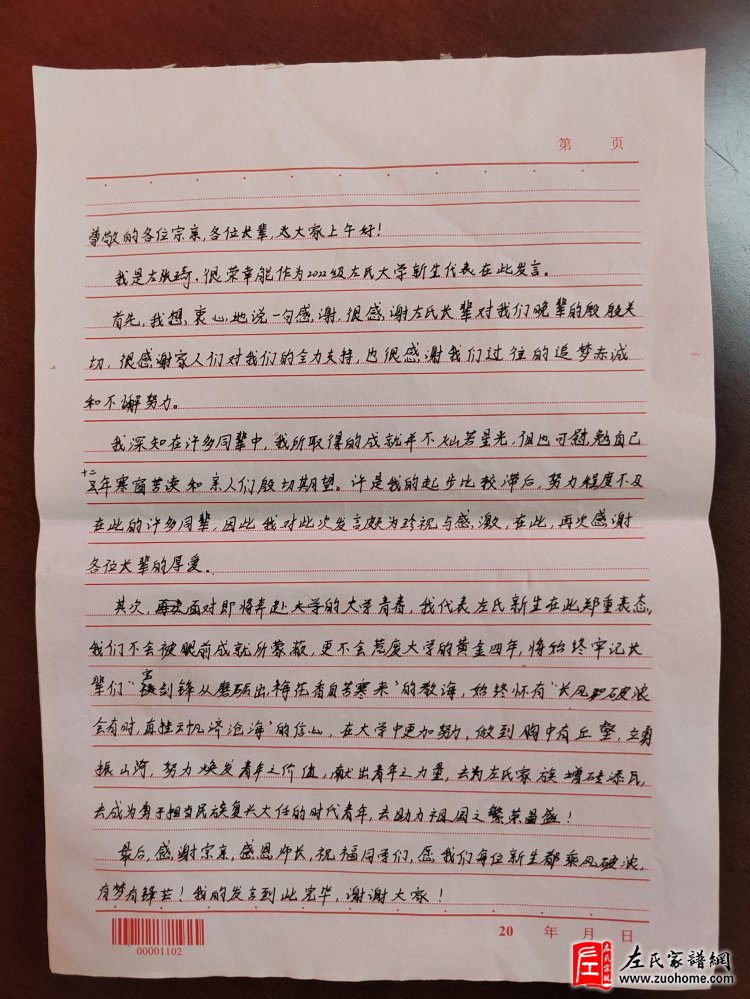 第 页
尊敬的各位宗亲,各位长辈,大家上午好!
我是左张琦,很荣幸能作为2022级左氏大学新生代表在此发言。
首先,我想衷心地说一句感谢,很感谢左氏长辈对我们晚辈的殷殷关
切,很感谢家人们对我们的全力支持,也很感谢我们过往的追梦赤诚
和不懈努力。
我深知在许多同辈中,我所取得的成就并不灿若星光,但也可慰勉自己
十二年寒窗苦读和亲人们殷切期望。许是我的起步比较滞后,努力程度不及
在此的许多同辈,因此我对此次发言颇为珍视与感激,在此,再次感谢
各位长辈的厚爱。
其次,面对即将奔赴的大学青春,我代表左氏新生在此郑重表态,
我们不会被眼前成就所蒙蔽,更不会荒度大学的黄金四年,将始终牢记长
辈们“宝剑锋从磨砺出,梅花香自苦寒来”的教诲,始终怀有“长风破浪
会有时,直挂云帆济沧海”的信心,在大学中更加努力,做到胸中有丘壑,立勇
振山河,努力焕发青年之价值,献出青年之力量,去为左氏家族增砖添瓦,
去成为勇于担当民族复兴大任的时代青年,去助力祖国之繁荣昌盛!
最后,感谢宗亲,感恩师长,祝福同学们,愿我们每位新生都乘风破浪,
有梦有锋芒!我的发言到此完毕,谢谢大家!
00001102
20 年 月 日
左氏家譜網
www.zuohome.com